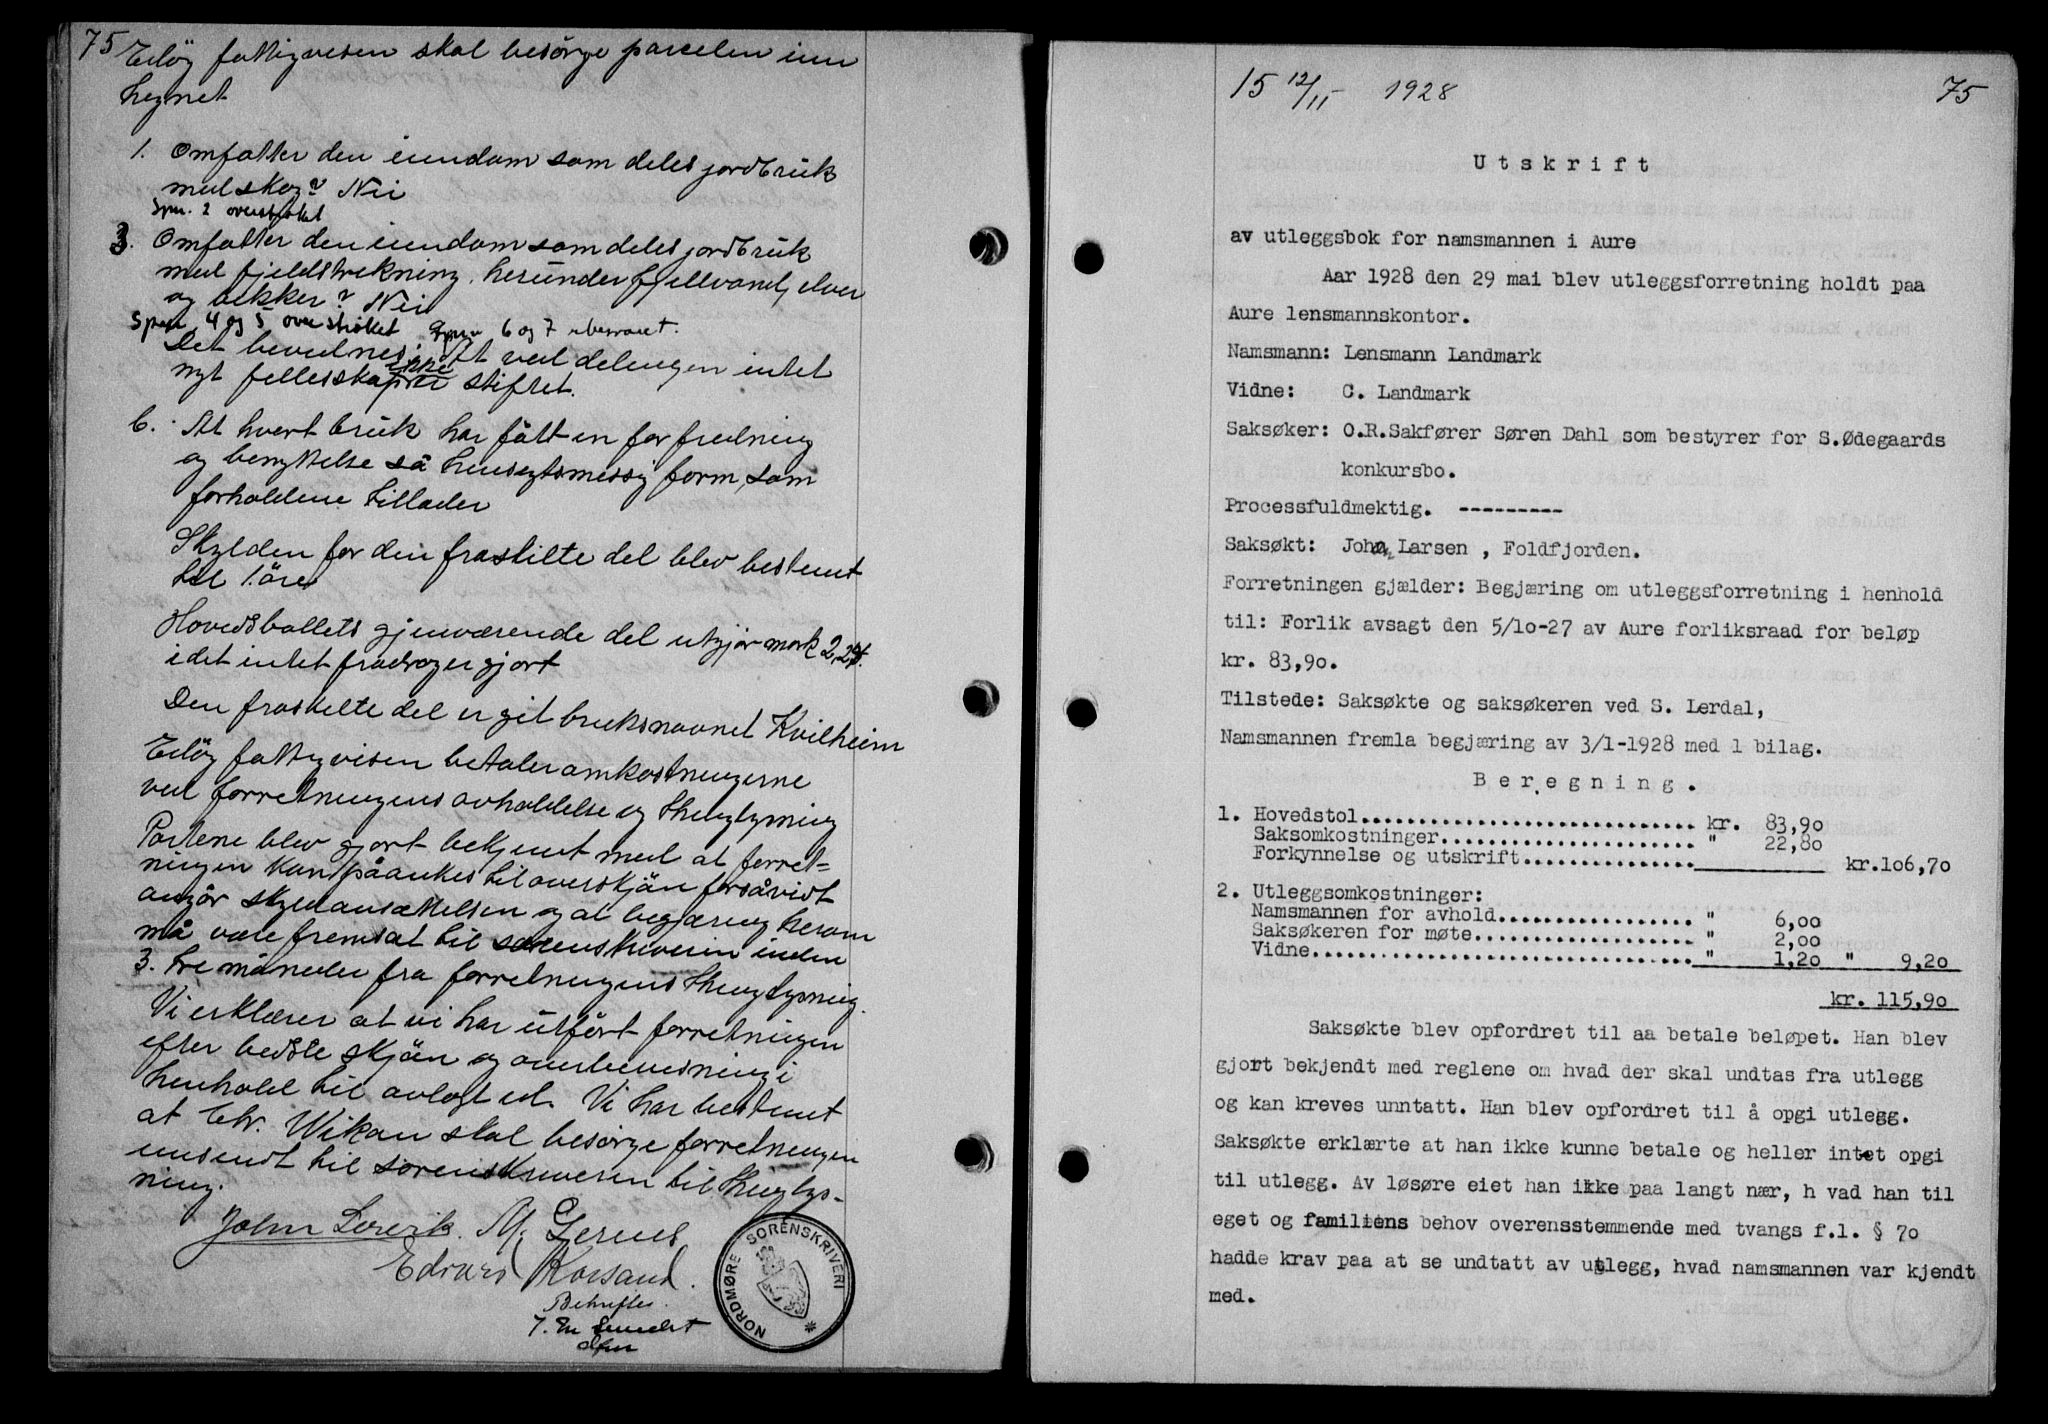 75
Edøy fattigvesen skal besörge parcelen inn
hegnet
1. Omfatter den eiendom som deles jordbruk
med skog? Nei
Spm. 2 overstrøket
3. Omfatter den eiendom som deles jordbruk
med fjeldstrekning, herunder fjellvand, elver
og bekker? Nei
Spm 4 og 5 overstrøket Spm 6 og 7 ubesvaret.
Det bevidnes: At ved delingen intet
nyt fellesskap er ikke stiftet.
6. At hvert bruk har fått en for fredning
og benyttelse så hensigtsmessig form, som
forholdene tillader
Skylden for den fraskilte del blev bestemt
til 1. öre
Hovedsbøllets gjenværende del utgjør mark 2,24.
idet intet fradrag er gjort
Den fraskilte del er git bruksnavnet Kvilheim
Edøy fattigvesen betaler omkostningerne
ved forretningens avholdelse og thinglysning
Partene blev gjort bekjent med at forret-
ningen kan påankes til overskjön forsåvidt
angår skyldansættelsen og at begjæring herom
må være fremsat til sorenskriveren inden
3. tre måneder fra forretningens thinglysning.
Vi erklærer at vi har utført forretningen
efter bedste skjön og overbevisning i
henhold til avlagt ed. Vi har bestemt
at Chr. Wikan skal besörge forretningen
innsendt til sorenskriveren til thinglys-
ning.
John Lervik. M. Gjernes
Edvard Korsand.
Bekreftes.
NORDMØRE SORENSKRIVERI
15 12/11 1928 75
Utskrift
av utleggsbok for namsmannen i Aure
Aar 1928 den 29 mai blev utleggsforretning holdt paa
Aure lensmannskontor.
Namsmann: Lensmann Landmark
Vidne: C. Landmark
Saksøker: O.R.Sakfører Søren Dahl som bestyrer for S.Ødegaards
konkursbo.
Processfuldmektig. ---------
Saksøkt: Johan Larsen , Foldfjorden.
Forretningen gjælder: Begjæring om utleggsforretning i henhold
til: Forlik avsagt den 5/10-27 av Aure forliksraad for beløp
kr. 83,90.
Tilstede: Saksøkte og saksøkeren ved S. Lerdal,
Namsmannen fremla begjæring av 3/1-1928 med 1 bilag.
Beregning.
1. Hovedstol............................... kr. 83,90
Saksomkostninger........................ " 22,80
Forkynnelse og utskrift................ kr.106,70
2. Utleggsomkostninger:
Namsmannen for avhold.................. " 6,00
Saksøkeren for møte.................... " 2,00
Vidne................................... " 1,20 " 9,20
kr. 115,90
Saksøkte blev opfordret til aa betale beløpet. Han blev
gjort bekjendt med reglene om hvad der skal undtas fra utlegg
og kan kreves unntatt. Han blev opfordret til å opgi utlegg.
Saksøkte erklærte at han ikke kunne betale og heller intet opgi
til utlegg. Av løsøre eiet han ikke paa langt nær, h vad han til
eget og familiens behov overensstemmende med tvangs f.l. § 70
hadde krav paa at se undtatt av utlegg, hvad namsmannen var kjendt
med.